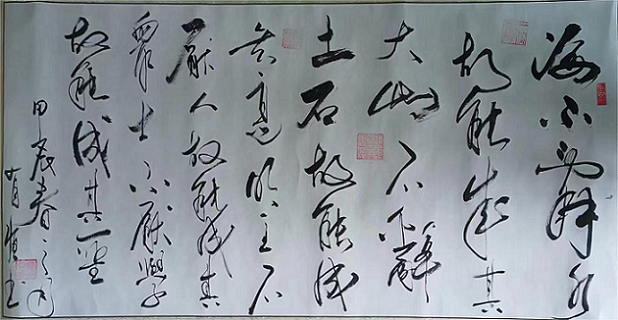 海不辭水
故能成其
大山不辭
土石故能成
其高明主不
厭人故能成其
眾士不厭學
故能成其聖
甲春之月
書